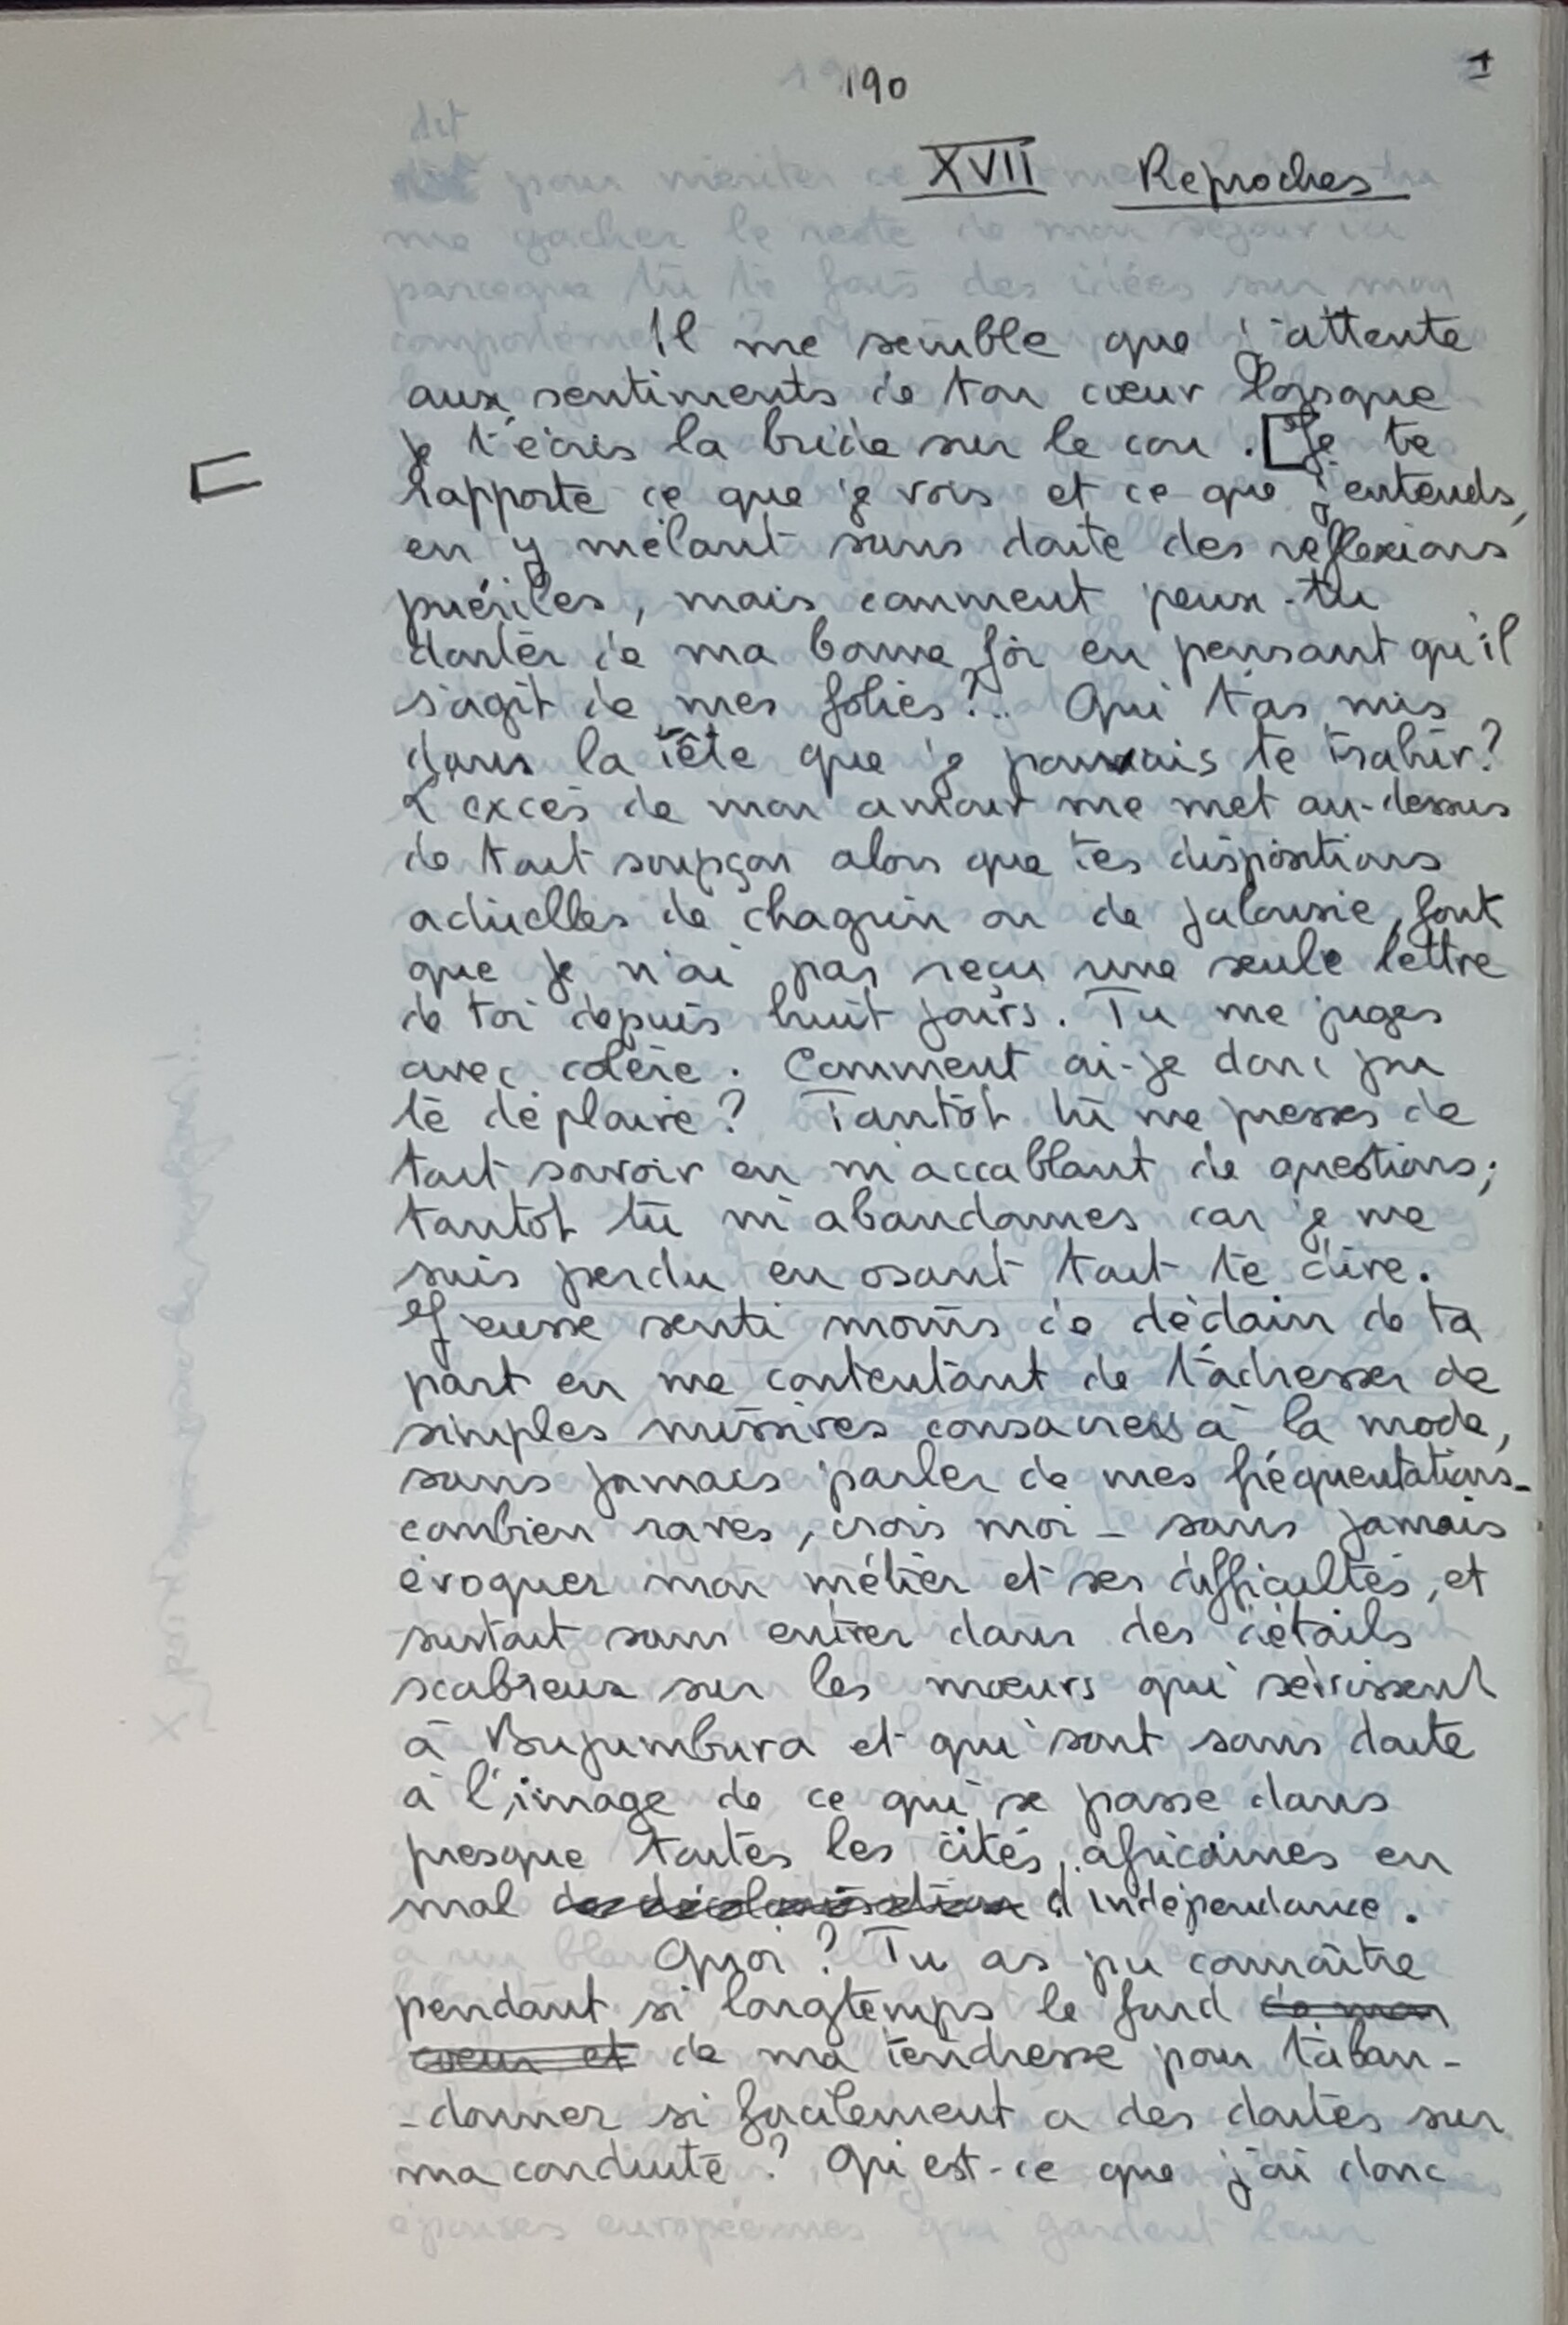 190
1
XVII Reproches
Il me semble que j'attente
aux sentiments de ton cœur lorsque
je t'écris la bride sur le cou. [Je te
rapporte ce que je vois et ce que j'entends,
en y mêlant sans doute des réflexions
puériles, mais comment peux-tu
douter de ma bonne foi en pensant qu'il
s'agit de mes folies?.. Qui t'as mis
dans la tête que je pouvais te trahir?
L'excès de mon amour me met au-dessus
de tout soupçon alors que tes dispositions
actuelles de chagrin ou de jalousie, font
que je n'ai pas reçu une seule lettre
de toi depuis huit jours. Tu me juges
avec colère. Comment ai-je donc pu
te déplaire? Tantôt tu me presses de
tout savoir en m'accablant de questions;
tantôt tu m'abandonnes car je me
suis perdu en osant tout te dire.
J'eusse senti moins de dédain de ta
part en me contentant de t'adresser de
simples missives consacrées à la mode,
sans jamais parler de mes fréquentations -
combien rares, crois moi - sans jamais
évoquer mon métier et ses difficultés, et
surtout sans entrer dans des détails
scabreux sur les mœurs qui sévissent
à Bujumbura et qui sont sans doute
à l'image de ce qui se passe dans
presque toutes les cités africaines en
mal de décolonisation d'indépendance.
Quoi? Tu as pu connaître
pendant si longtemps le fond de mon
cœur et de ma tendresse pour t'aban-
-donner si facilement a des doutes sur
ma conduite? Qu'est-ce que j'ai donc